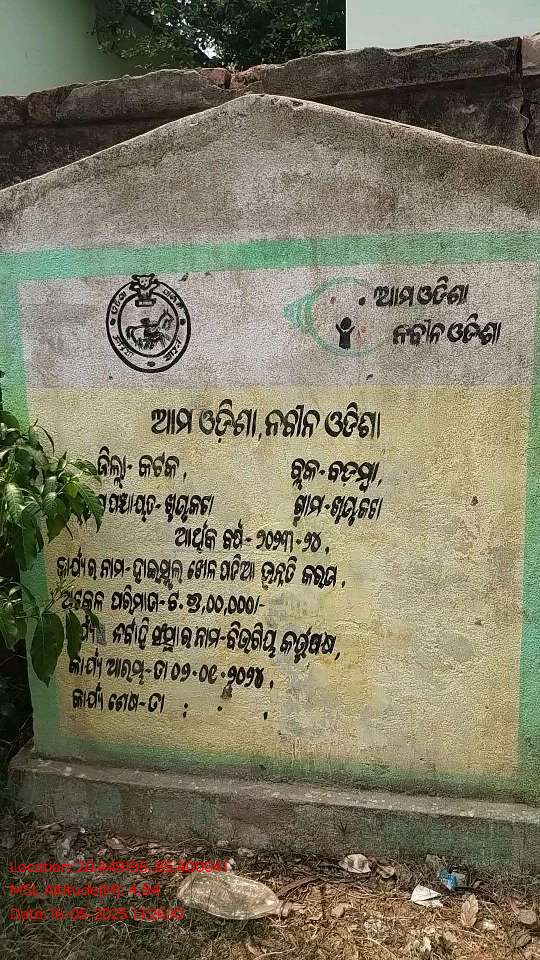 ଆମ ଓଡିଶା
ନବୀନ ଓଡିଶା
ଆମ ଓଡ଼ିଶା, ନବୀନ ଓଡିଶା
ଜିଲ୍ଲା- କଟକ, ବ୍ଲକ- ବଡମ୍ବା,
ପଞ୍ଚାୟତ- ଗ୍ରାମ-
ଆର୍ଥିକ ବର୍ଷ- ୨୦୨୩-୨୪,
କାର୍ଯ୍ୟର ନାମ- ହାଇସ୍କୁଲ ଖେଳ ପଡିଆ ଉନ୍ନତି କରଣ,
ଅଟକଳ ପରିମାଣ-ଟ. ,୦୦,୦୦୦/-
ନିର୍ବାହି ସଂସ୍ଥାର ନାମ-ବିଭାଗିୟ କର୍ତ୍ତୃପକ୍ଷ,
କାର୍ଯ୍ୟ ଆରମ୍ଭ-ତା ୨୦୨୪,
କାର୍ଯ୍ୟ ଶେଷ-ତା : . ,
Location:
MSL Altitude(M): 4.94
Date: 16-05-2025